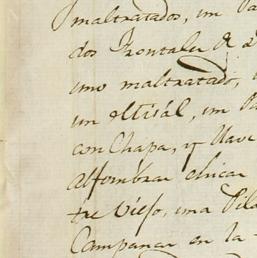 maltratados, un
dos Frontales
uno maltratado,
un Missál, un
con Chapa, y llave
Alfombrar chicar
tre Viejo, una Pila
Campanar en la